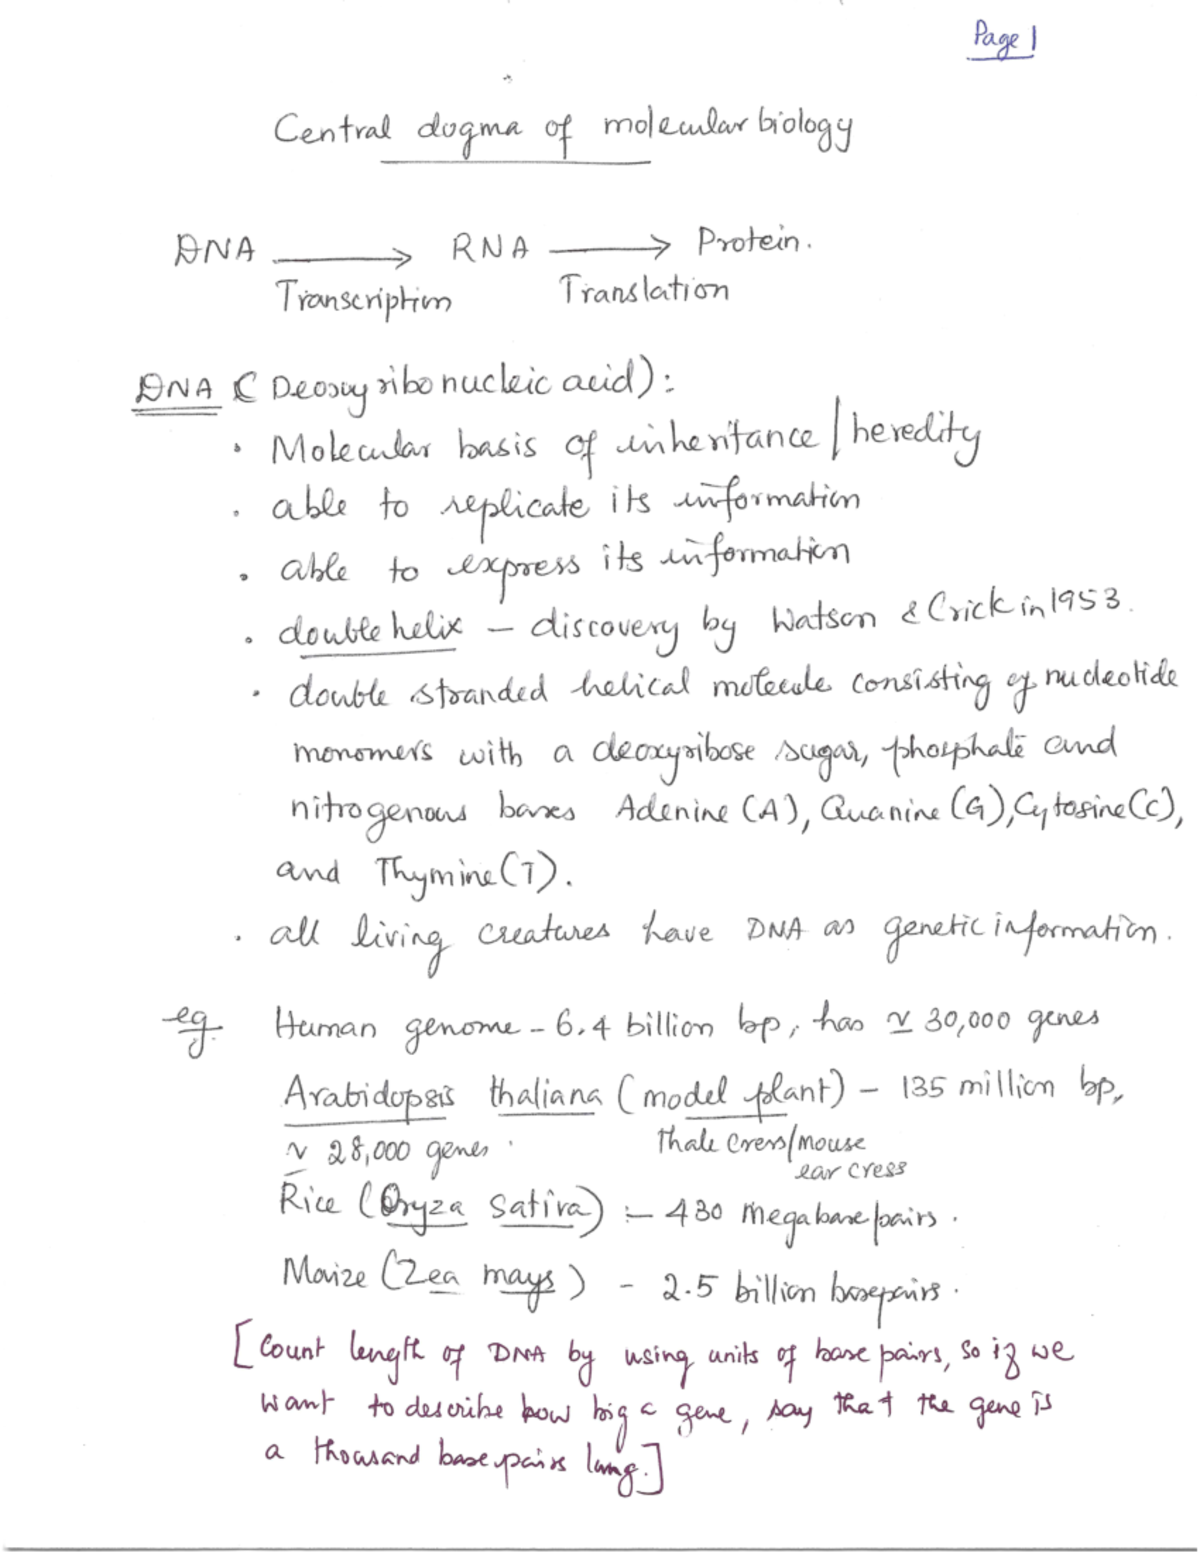 Page 1
Central dogma of molecular biology
DNA → RNA → Protein.
Transcription Translation
DNA (Deoxyribonucleic acid):
• Molecular basis of inheritance / heredity
• able to replicate its information
• able to express its information
• double helix – discovery by Watson & Crick in 1953.
• double stranded helical molecule consisting of nucleotide
monomers with a deoxyribose sugar, phosphate and
nitrogenous bases Adenine (A), Guanine (G), Cytosine (C),
and Thymine (T).
• all living creatures have DNA as genetic information.
eg. Human genome – 6.4 billion bp, has ~ 30,000 genes
Arabidopsis thaliana (model plant) – 135 million bp,
~ 28,000 genes. thale cress/mouse
ear cress
Rice (Oryza sativa) :– 430 Megabase pairs.
Maize (Zea mays) – 2.5 billion basepairs.
[Count length of DNA by using units of base pairs, so if we
want to describe how big a gene, say that the gene is
a thousand base pairs long.]